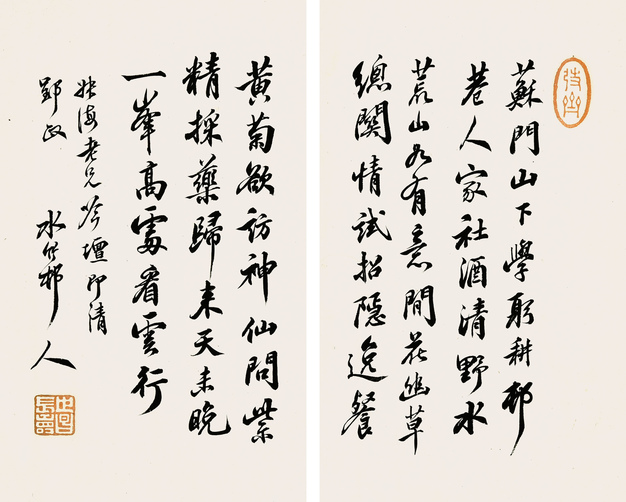 蘇門山下學躬耕邨
巷人家社酒清野水
荒山如有意閒花幽草
總關情試招隱逸餐
黃菊欲訪神仙問紫
精採藥歸來天未晚
一峯高處看雲行
叔海老兄吟壇即清
郢政
水竹邨人